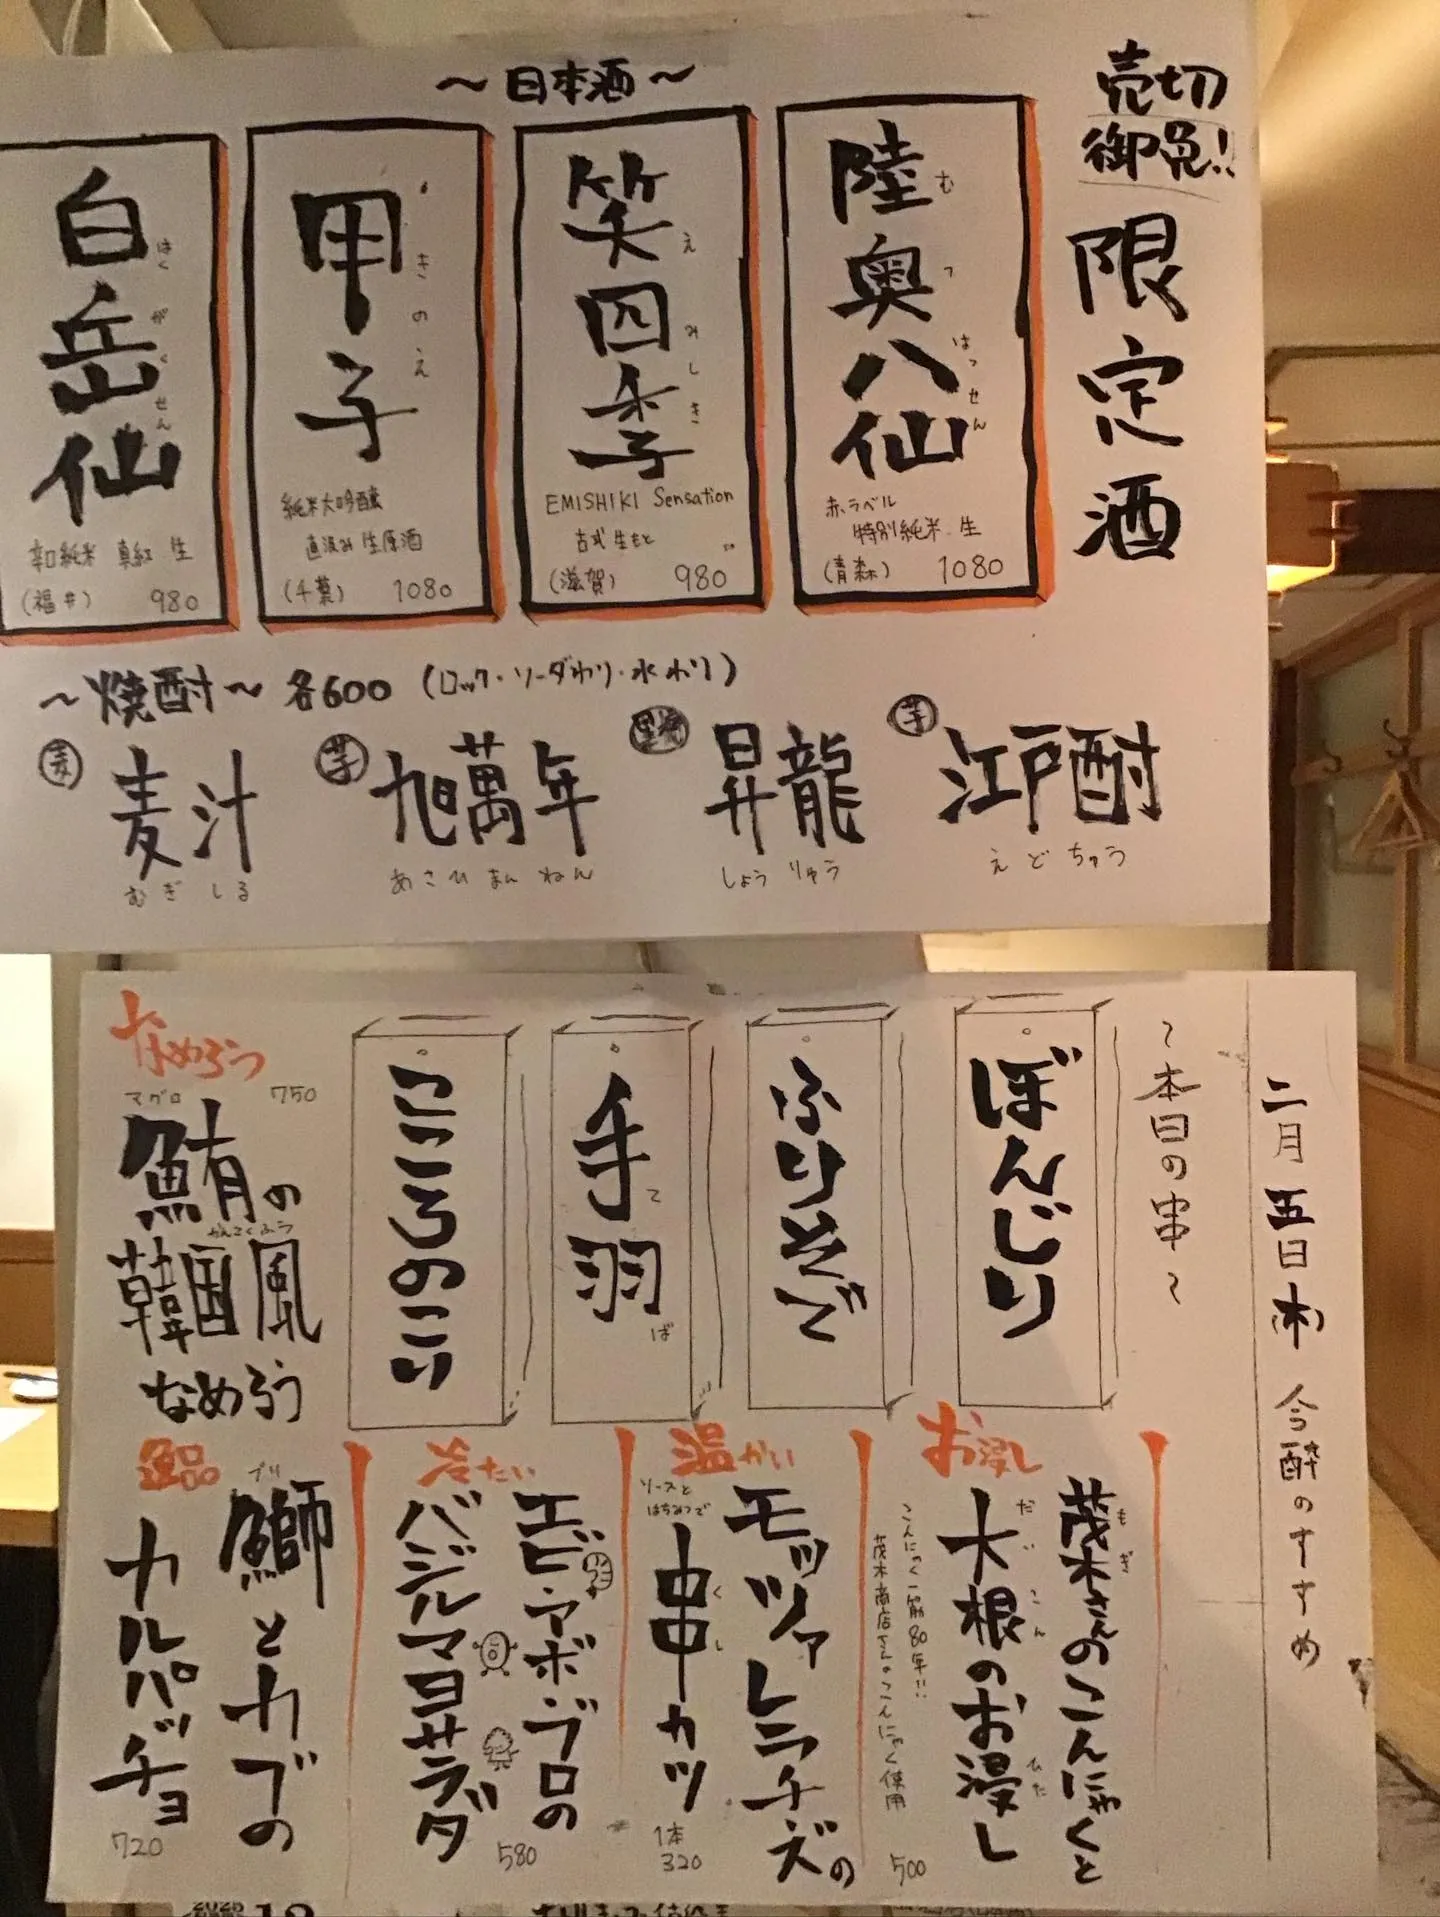 売切
御免!!
限定酒
〜日本酒〜
陸奥八仙
むつはっせん
赤ラベル
特別純米 生
(青森) 1080
笑四季
えみしき
EMISHIKI Sensation
古式生もと
(滋賀) 980
甲子
きのえ
純米大吟醸
直汲み生原酒
(千葉) 1080
白岳仙
はくがくせん
辛口純米 真紅 生
(福井) 980
〜焼酎〜 各600 (ロック・ソーダわり・水わり)
芋
江戸酎
えどちゅう
昇龍
しょうりゅう
芋
旭萬年
あさひまんねん
麦
麦汁
むぎしる
二月五日木 今酔のすすめ
〜本日の串〜
ぼんじり
ふりそで
手羽
てば
こころのこり
なめろう
750
マグロ
鮪の
かんこくふう
韓国風
なめろう
お浸し
もぎ
茂木さんのこんにゃくと
だいこん ひた
大根のお浸し
こんにゃく一筋80年!!
茂木商店さんのこんにゃく使用
500
温かい
モッツァレラチーズの
ソースと
はちみつで
串カツ
くし
1本
320
冷たい
エビ・アボ・ブロの
バジルマヨサラダ
580
逸品
ブリ
鰤とカブの
カルパッチョ
720